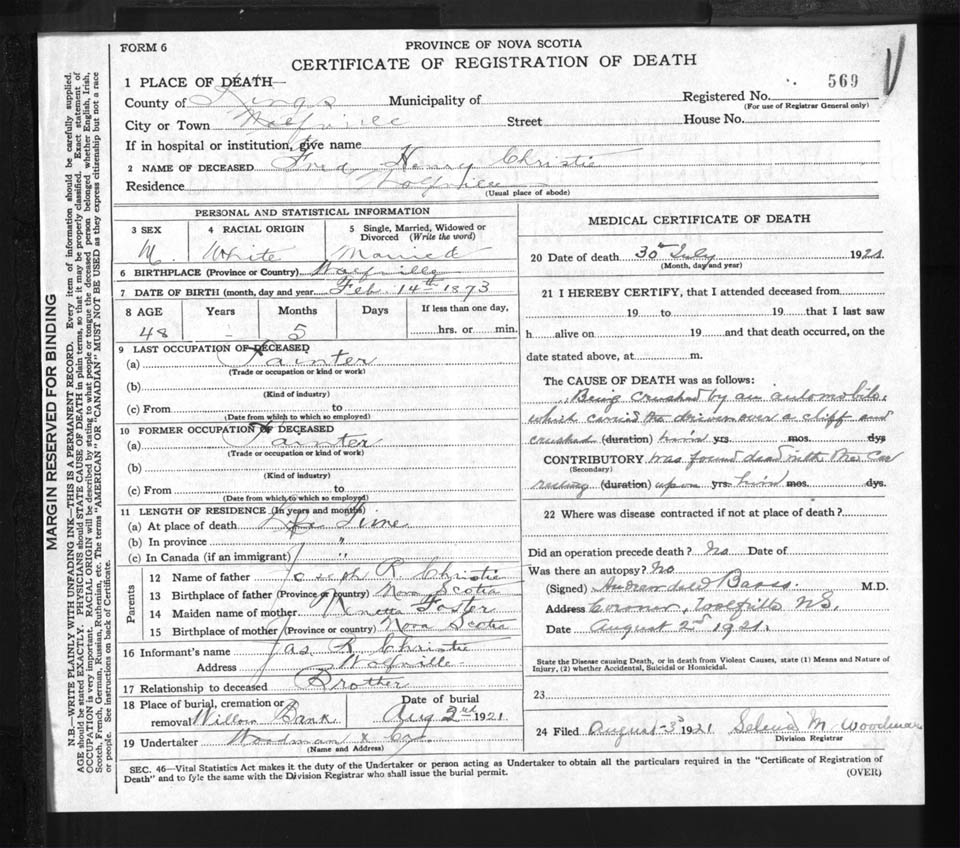 FORM 6
PROVINCE OF NOVA SCOTIA
CERTIFICATE OF REGISTRATION OF DEATH
1 PLACE OF DEATH
569
County of Kings Municipality of Registered No.
(For use of Registrar General only)
City or Town Wolfville Street House No.
If in hospital or institution, give name
2 NAME OF DECEASED Fred Henry Christie
Residence Wolfville
(Usual place of abode)
PERSONAL AND STATISTICAL INFORMATION
3 SEX 4 RACIAL ORIGIN 5 Single, Married, Widowed or Divorced (Write the word)
M. White Married
6 BIRTHPLACE (Province or Country) Wolfville
7 DATE OF BIRTH (month, day and year) Feb. 14th 1873
8 AGE Years Months Days If less than one day,
48 - 5 hrs. or min.
9 LAST OCCUPATION OF DECEASED
(a) Painter
(Trade or occupation or kind or work)
(b)
(Kind of industry)
(c) From to
(Date from which to which so employed)
10 FORMER OCCUPATION OF DECEASED
(a) Painter
(Trade or occupation or kind of work)
(b)
(Kind of industry)
(c) From to
(Date from which to which so employed)
11 LENGTH OF RESIDENCE (In years and months)
(a) At place of death Life Time
(b) In province "
(c) In Canada (if an immigrant) "
Parents
12 Name of father Joseph R Christie
13 Birthplace of father (Province or country) Nova Scotia
14 Maiden name of mother Foster
15 Birthplace of mother (Province or country) Nova Scotia
16 Informant's name Jas R Christie
Address Wolfville
17 Relationship to deceased Brother
18 Place of burial, cremation or removal Willow Bank
Date of burial
Aug 2nd 1921
19 Undertaker Woodman & Co.
(Name and Address)
MEDICAL CERTIFICATE OF DEATH
20 Date of death 30th July 1921
(Month, day and year)
21 I HEREBY CERTIFY, that I attended deceased from
19 to 19 that I last saw
h alive on 19 and that death occurred, on the
date stated above, at m.
The CAUSE OF DEATH was as follows:
Being crushed by an automobile,
which carried the driver over a cliff and
crushed (duration) him yrs. mos. dys
CONTRIBUTORY was found dead with the Car
(Secondary)
resting (duration) upon yrs. him mos. dys.
22 Where was disease contracted if not at place of death?
Did an operation precede death? No Date of
Was there an autopsy? No
(Signed) Barss. M.D.
Address Coroner, Wolfville NS.
Date August 2nd 1921.
State the Disease causing Death, or in death from Violent Causes, state (1) Means and Nature of
Injury, (2) whether Accidental, Suicidal or Homicidal.
23
24 Filed August 3rd 1921 M Woodman
Division Registrar
SEC. 46—Vital Statistics Act makes it the duty of the Undertaker or person acting as Undertaker to obtain all the particulars required in the "Certificate of Registration of
Death" and to fyle the same with the Division Registrar who shall issue the burial permit.
(OVER)
MARGIN RESERVED FOR BINDING
N.B.—WRITE PLAINLY WITH UNFADING INK—THIS IS A PERMANENT RECORD. Every item of information should be carefully supplied.
AGE should be stated EXACTLY. PHYSICIANS should STATE CAUSE OF DEATH in plain terms, so that it may be properly classified. Exact statement of
OCCUPATION is very important. RACIAL ORIGIN will be described by stating to what people or tongue the deceased person belonged whether English, Irish,
Scotch, French, German, Russian, Ruthenian, etc. The terms "AMERICAN" OR "CANADIAN" MUST NOT BE USED as they express citizenship but not a race
or people. See instructions on back of Certificate.